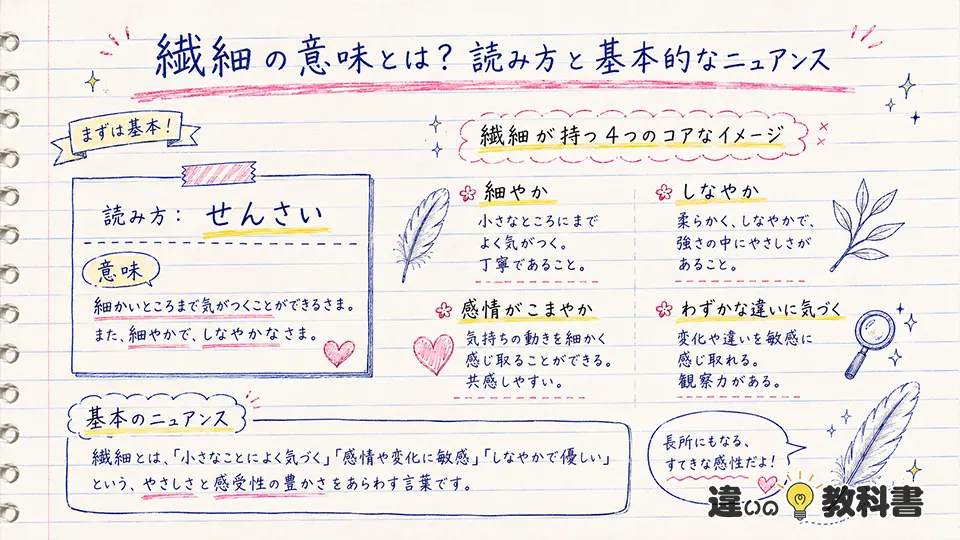 繊細の意味とは？読み方と基本的なニュアンス
まずは基本！
読み方： せんさい
意味
細かいところまで気がつくことができるさま。
また、細やかで、しなやかなさま。
繊細が持つ４つのコアなイメージ
細やか
小さなところにまで
よく気がつく。
丁寧であること。
しなやか
柔らかく、しなやかで、
強さの中にやさしさが
あること。
感情がこまやか
気持ちの動きを細かく
感じ取ることができる。
共感しやすい。
わずかな違いに気づく
変化や違いを敏感に
感じ取れる。
観察力がある。
基本のニュアンス
繊細とは、「小さなことによく気づく」「感情や変化に敏感」「しなやかで優しい」
という、やさしさと感受性の豊かさをあらわす言葉です。
長所にもなる、
すてきな感性だよ！
違いの教科書